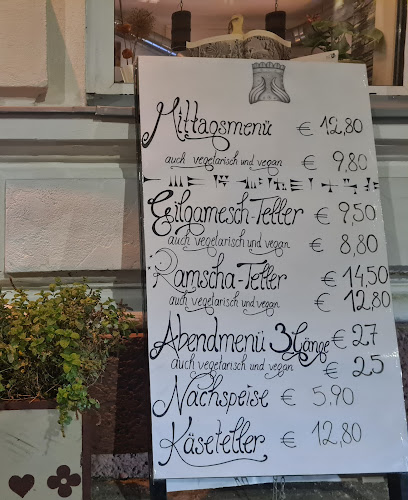 Mittagsmenü € 12,80
auch vegetarisch und vegan € 9,80
Gilgamesch-Teller € 9,50
auch vegetarisch und vegan € 8,80
Ramscha-Teller € 14,50
auch vegetarisch und vegan € 12,80
Abendmenü 3 Gänge € 27
auch vegetarisch und vegan € 25
Nachspeise € 5,90
Käseteller € 12,80